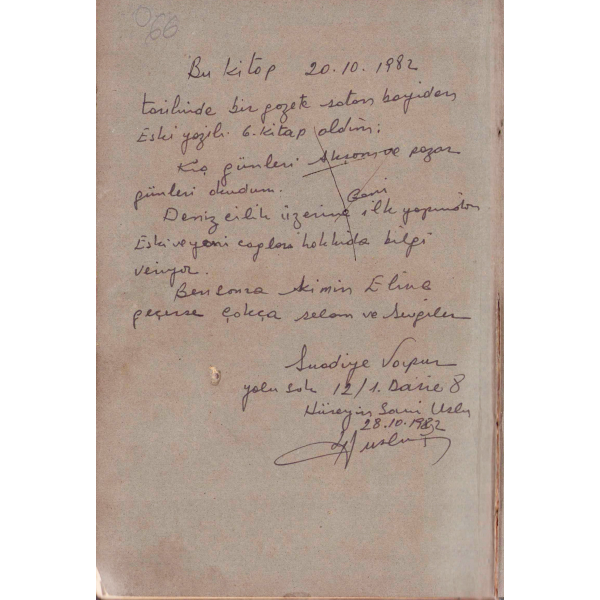 66
Bu kitap 20.10.1982
tarihinde bir gazete satan bayiden
Eski yazılı 6. kitap aldım;
Kış günleri Akşam ve pazar
günleri okudum.
Denizcilik üzerine ilk yapından
Eski ve yeni çagları hakkıda bilgi
veriyor.
Benden sonra kimin Eline
geçerse çokça selam ve sevgiler
Suadiye Vapur
yolu sok 12/1. Daire 8
Hüseyin Sami Uslu
28.10.1982